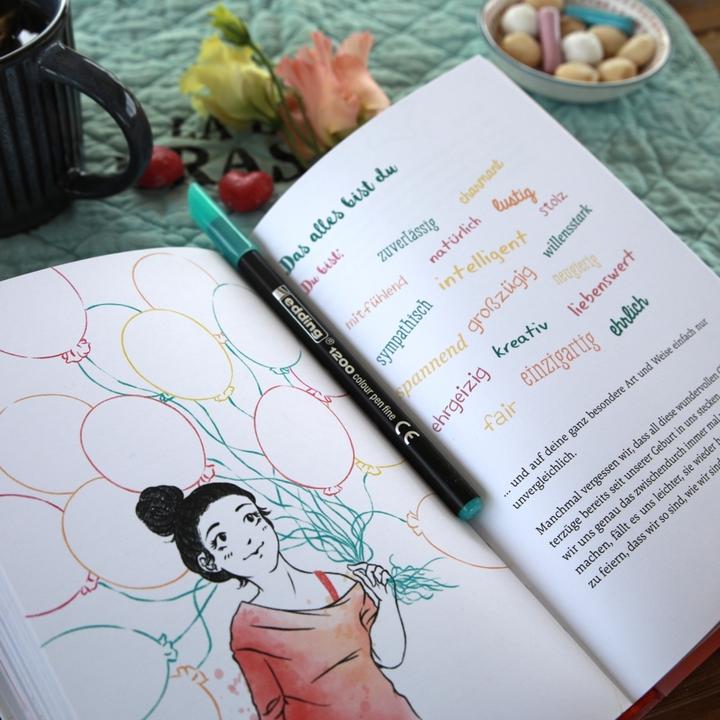 Das alles bist du
Du bist: zuverlässig charmant
mitfühlend natürlich lustig stolz
sympathisch intelligent willensstark
spannend großzügig neugierig
ehrgeizig kreativ liebenswert
fair einzigartig ehrlich
... und auf deine ganz besondere Art und Weise einfach nur
unvergleichlich.
Manchmal vergessen wir, dass all diese wundervollen
terzüge bereits seit unserer Geburt in uns stecken
wir uns genau das zwischendurch immer mal
machen, fällt es uns leichter, sie wieder
zu feiern, dass wir so sind, wie wir
edding® 1200 colour pen fine CE